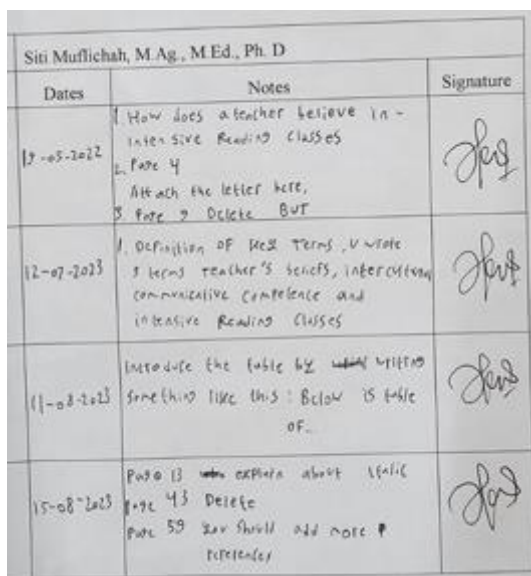 Siti Muflichah, M.Ag., M.Ed., Ph. D
Dates Notes Signature
19-05-2022
1. How does a teacher believe in -
intensive Reading Classes
2. Page 4
Attach the letter here,
3. Page 9 Delete BUT
12-07-2023
1. Definition OF Key Terms, U wrote
3 terms teacher's beliefs, intercultural
communicative Competence and
intensive Reading Classes
11-08-2023
Introduce the table by writing
something like this : Below is table
OF..
15-08-2023
Page 13 explain about italic
Page 43 Delete
Page 59 you should add more
references